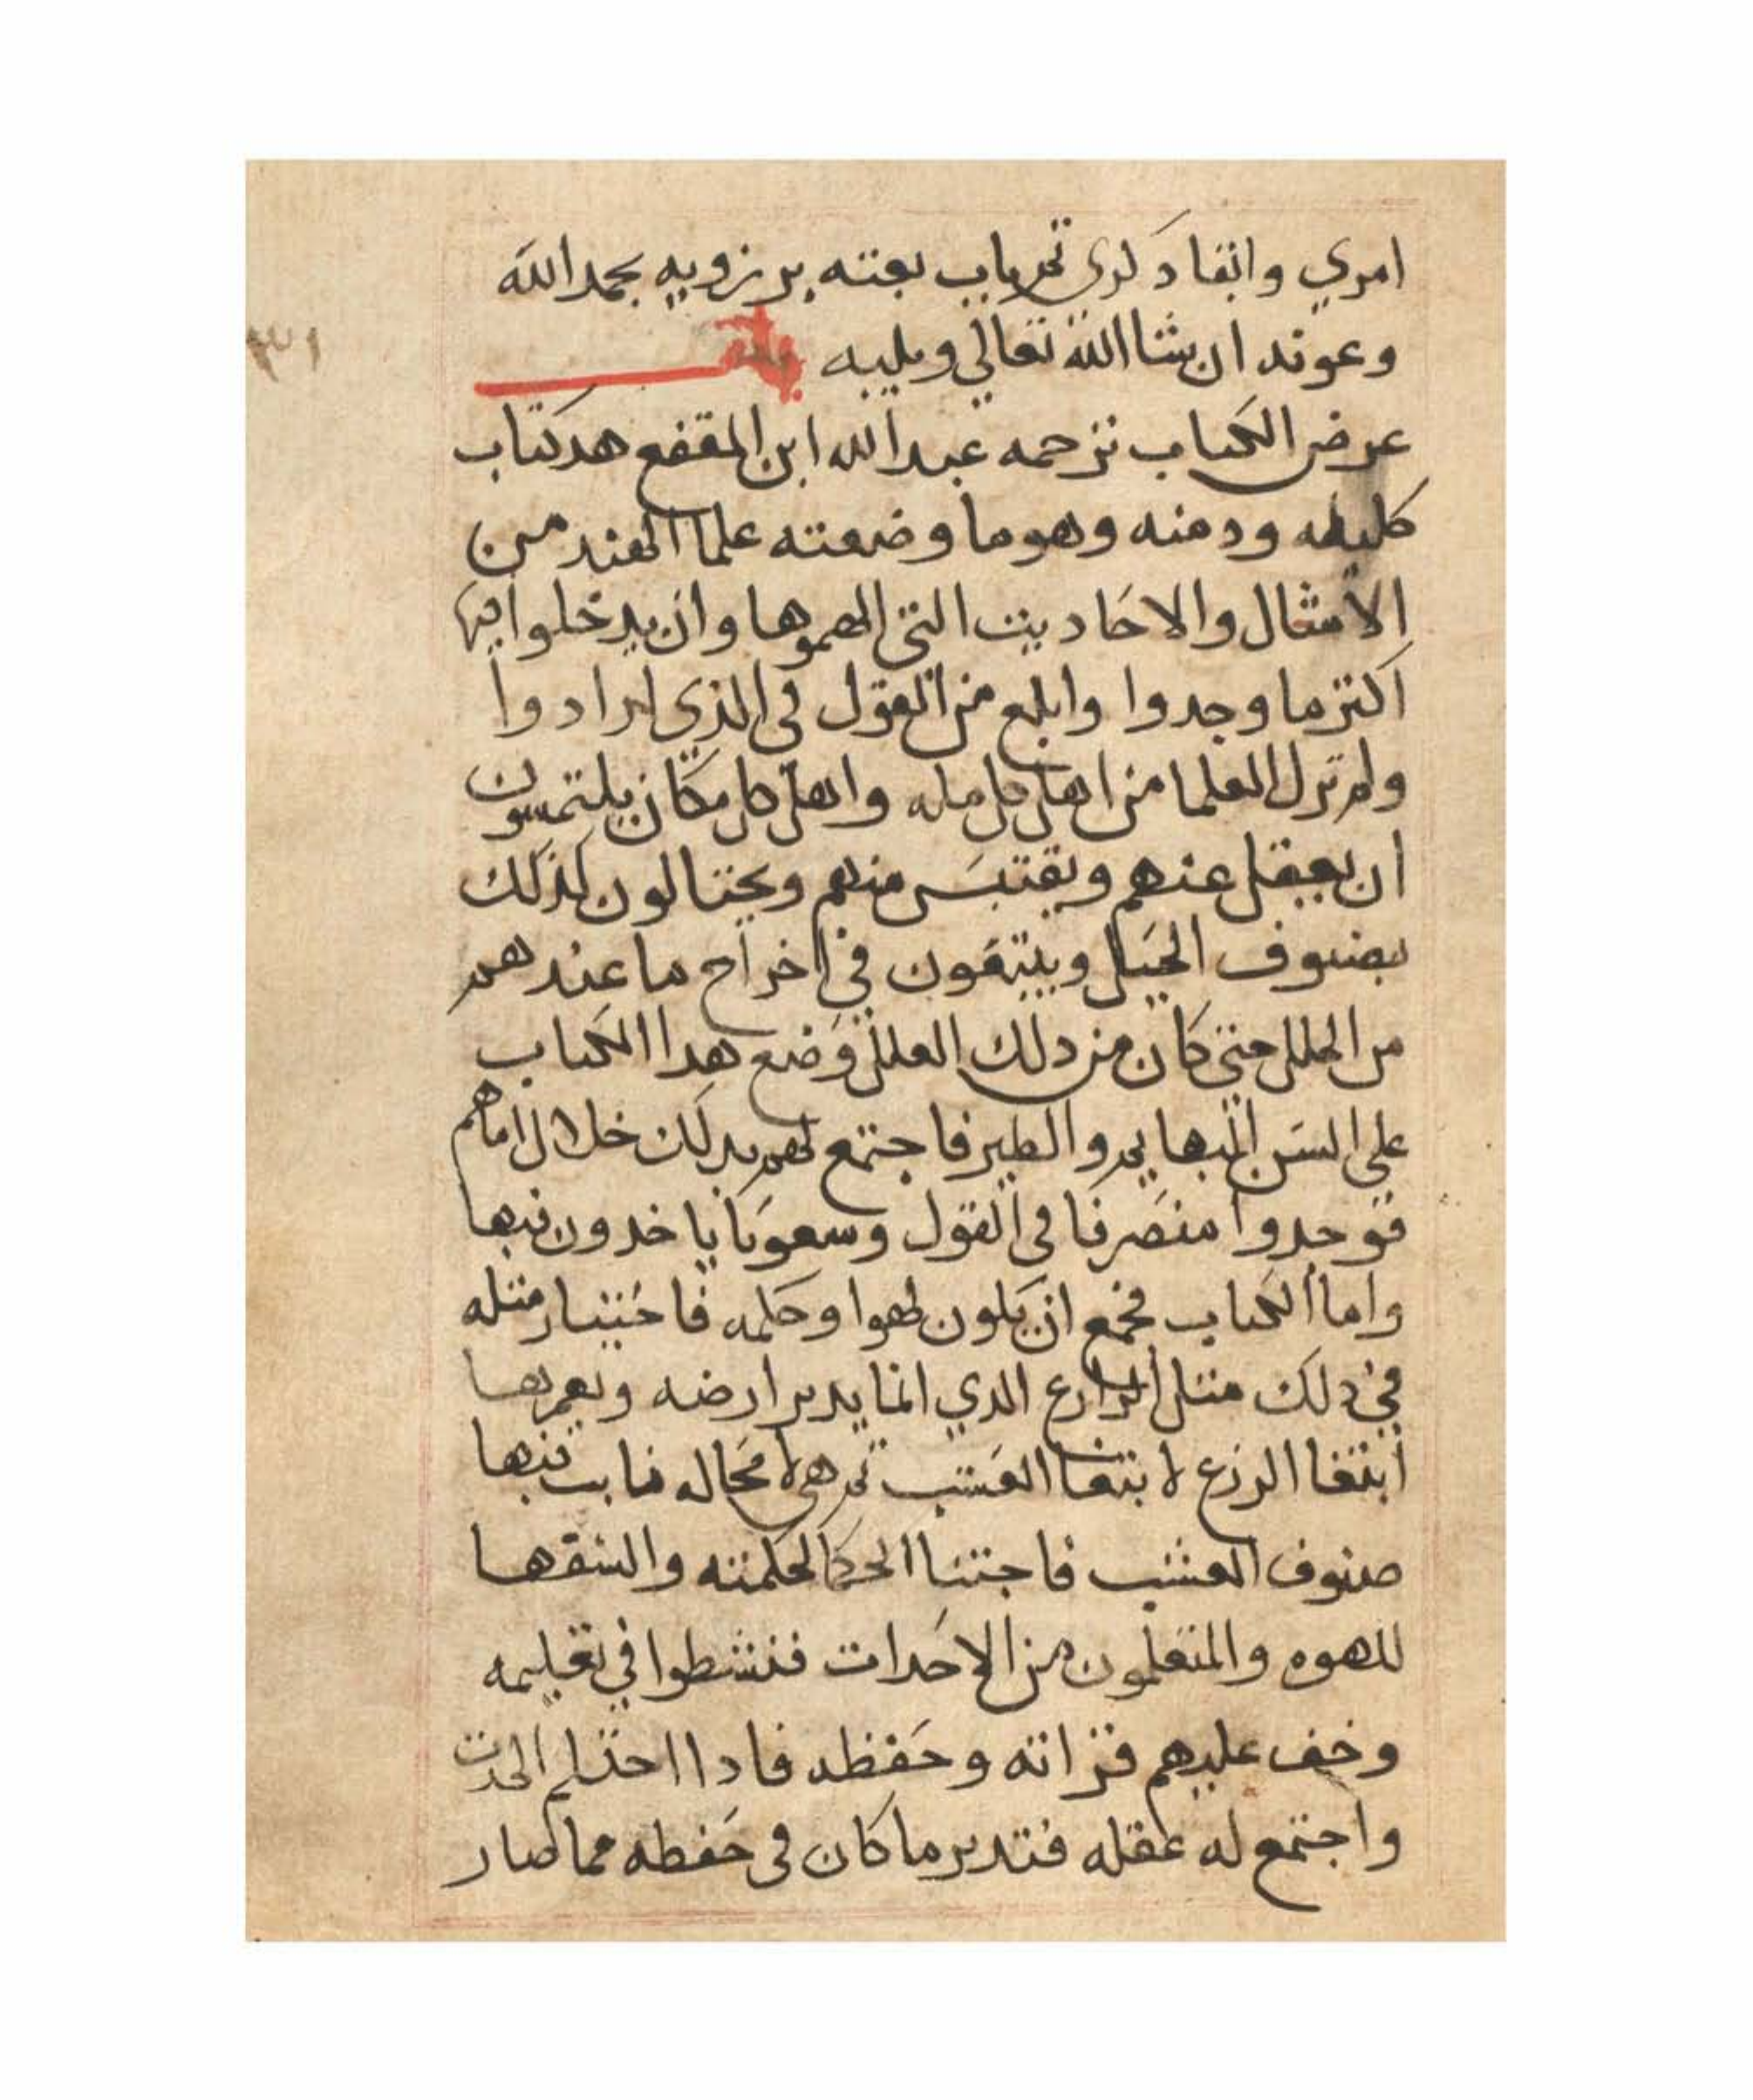 امري وانفاد لري تم باب بعثته برزويه بحمد الله
وعونه ان شا الله تعالي ويليه باب
٣١
عرض الكتاب ترجمه عبد الله ابن المقفع هد كتاب
كليله ودمنه وهو ما وضعته علما الهند من
الامثال والاحاديث التي الهموها وان يدخلوا فيها
اكثر ما وجدوا وابلغ من القول في الذي ارادوا
ولم تزل العلما من اهل كل مله واهل كل مكان يلتمسون
ان يعقل عنهم ويقتبس منهم ويحتالون لذلك
بصنوف الحيل ويبتغون في اخراج ما عندهم
من العلل حتي كان من دلك العلل وضع هدا الكتاب
علي السن البهايم والطير فاجتمع لهم بدلك خلال اماهم
فوجدوا منصرفا في القول وسعوبا ياخدون فيها
واما الكتاب فجمع ان يكون لهوا وحكمه فاختيار مثله
في دلك مثل الزارع الدي انما يدبر ارضه ويعمرها
ابتغا الزرع لا ابتغا العشب تم هي لا محاله نابت فيها
صنوف العشب فاجتنا الحكما لحكمته والسفها
للهوه والمتعلمون من الاحدات فنشطوا في تعليمه
وخف عليهم قراته وحفظه فادا احتلم الحدت
واجتمع له عقله فتدبر ما كان في حفظه مما صار